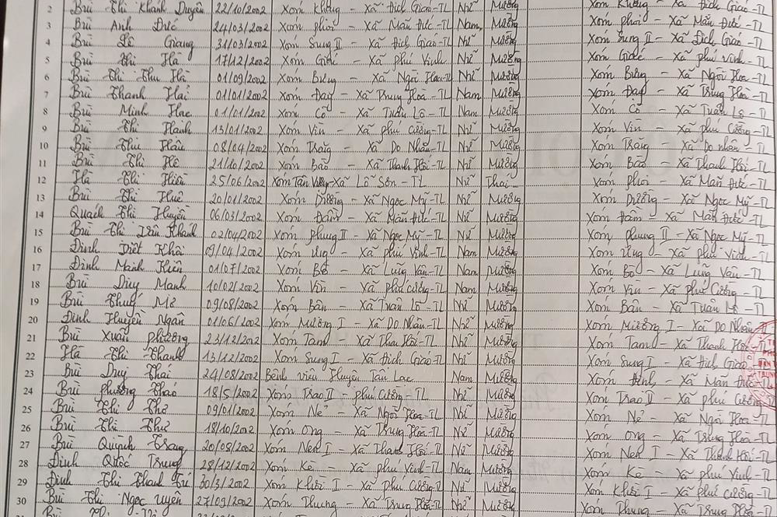 2 Bùi Thị Khánh Duyên 22/10/2002 Xóm Khưng - Xã Địch Giáo - TL Nữ Mường Xóm Khưng - Xã Địch Giáo - TL
3 Bùi Anh Đức 24/03/2002 Xóm phoi - Xã Mãn Đức - TL Nam Mường Xóm phoi - Xã Mãn Đức - TL
4 Bùi Lê Giang 31/03/2002 Xóm Sung II - Xã Địch Giáo - TL Nữ Mường Xóm Sung II - Xã Địch Giáo - TL
5 Bùi Thị Hà 17/12/2002 Xóm - Xã phú Vinh - TL Nữ Mường Xóm - Xã phú Vinh - TL
6 Bùi Thị Thu Hà 01/09/2002 Xóm Bưng - Xã Ngòi Hoa - TL Nữ Mường Xóm Bưng - Xã Ngòi Hoa - TL
7 Bùi Thanh Hải 01/01/2002 Xóm Đay - Xã Trung Hòa - TL Nam Mường Xóm Đay - Xã Trung Hòa - TL
8 Bùi Minh 01/01/2002 Xóm Cò - Xã Tuân Lộ - TL Nam Mường Xóm Cò - Xã Tuân Lộ - TL
9 Bùi Thị Hạnh 13/01/2002 Xóm Vin - Xã phú Cường - TL Nữ Mường Xóm Vin - Xã phú Cường - TL
10 Bùi Thu 08/04/2002 Xóm - Xã Do Nhân - TL Nữ Mường Xóm - Xã Do nhân - TL
11 Bùi Thị 21/10/2002 Xóm Bào - Xã Thanh Hối - TL Nữ Mường Xóm Bào - Xã Thanh Hối - TL
12 Hà Thị Hiền 25/06/2002 Xóm Tân - Xã Lỗ Sơn - TL Nữ Thái Xóm phoi - Xã Mãn Đức - TL
13 Bùi Thị Huê 20/01/2002 Xóm Dường - Xã Ngọc Mỹ - TL Nữ Mường Xóm Dường - Xã Ngọc Mỹ - TL
14 Quách Thị Huyền 06/03/2002 Xóm - Xã Mãn Đức - TL Nữ Mường Xóm - Xã Mãn Đức - TL
15 Bùi Thị Khánh 02/04/2002 Xóm phung II - Xã Ngọc Mỹ - TL Nữ Mường Xóm phung II - Xã Ngọc Mỹ - TL
16 Đinh Khôi 09/04/2002 Xóm - Xã phú Vinh - TL Nam Mường Xóm - Xã phú Vinh - TL
17 Đinh Mạnh Kiên 01/07/2002 Xóm Bò - Xã Lũng Vân - TL Nam Mường Xóm Bò - Xã Lũng Vân - TL
18 Bùi Duy Mạnh 10/02/2002 Xóm Vin - Xã phú Cường - TL Nam Mường Xóm Vin - Xã phú Cường - TL
19 Bùi 09/08/2002 Xóm Bàn - Xã Tuân Lộ - TL Nữ Mường Xóm Bàn - Xã Tuân Lộ - TL
20 Đinh Huyền Ngân 01/06/2002 Xóm Mường I - Xã Do Nhân - TL Nữ Mường Xóm Mường I - Xã Do Nhân - TL
21 Bùi Xuân Phương 23/12/2002 Xóm Tam - Xã Thanh Hối - TL Mường Xóm Tam - Xã Thanh Hối - TL
22 Hà Thị Thanh 13/12/2002 Xóm Sung I - Xã Địch Giáo - TL Nữ Mường Xóm Sung I - Xã Địch Giáo
23 Bùi Duy Thái 24/08/2002 Bệnh viện Huyện Tân Lạc Nam Mường Xóm Định - Xã Mãn Đức - TL
24 Bùi Phương Thảo 18/5/2002 Xóm Trao II - phú Cường - TL Nữ Mường Xóm Trao II - Xã phú Cường - TL
25 Bùi Thị 09/01/2002 Xóm Nẻ - Xã Ngòi Hoa - TL Nữ Mường Xóm Nẻ - Xã Ngòi Hoa - TL
26 Bùi Thị Thư 18/10/2002 Xóm Ong - Xã Trung Hòa - TL Nữ Mường Xóm Ong - Xã Trung Hòa - TL
27 Bùi Quỳnh Trang 20/08/2002 Xóm Nen I - Xã Thanh Hối - TL Nữ Mường Xóm Nen I - Xã Thanh Hối
28 Đinh Quốc Trung 28/12/2002 Xóm Kè - Xã phú Vinh - TL Nam Mường Xóm Kè - Xã phú Vinh - TL
29 Đinh Thị Thanh 30/3/2002 Xóm Khời I - Xã phú Cường - TL Nữ Mường Xóm Khời I - Xã phú Cường
30 Bùi Thị Ngọc Uyên 27/09/2002 Xóm Thung - Xã Trung Hòa - TL Nữ Mường Xóm Thung - Xã Trung Hòa - TL